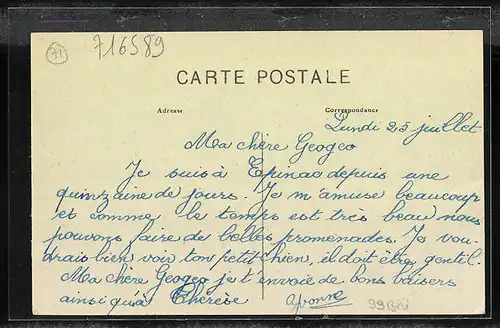 71
716589
CARTE POSTALE
Adresse
Correspondance
Lundi 25 juillet
Ma chère Geogeo
Je suis à Epinac depuis une
quinzaine de jours. Je m'amuse beaucoup
et comme le temps est très beau nous
pouvons faire de belles promenades. Je vou-
drais bien voir ton petit chien, il doit être gentil.
Ma chère Geogeo je t'envoie de bons baisers
ainsi qu'à Thérèse
Yvonne